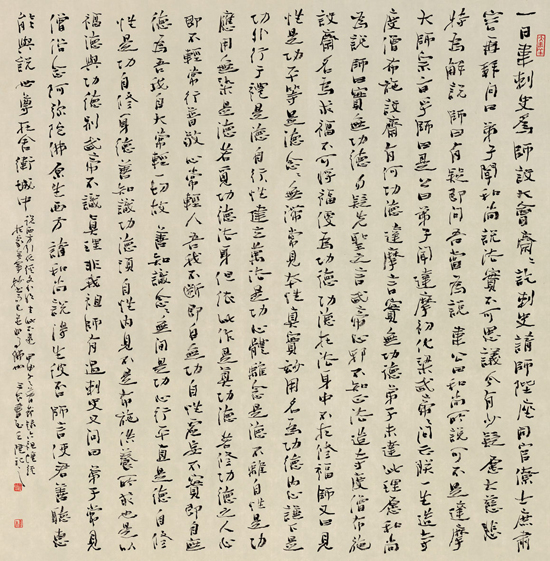 一日韋刺史爲師設大會齋齋訖刺史請師陞座同官僚士庶肅
容再拜問曰弟子聞和尚說法實不可思議今有少疑願大慈悲
特爲解說師曰有疑即問吾當爲說韋公曰和尚所說可不是達摩
大師宗旨乎師曰是公曰弟子聞達摩初化梁武帝帝問云朕一生造寺
度僧布施設齋有何功德達摩言實無功德弟子未達此理願和尚
爲說師曰實無功德勿疑先聖之言武帝心邪不知正法造寺度僧布施
設齋名爲求福不可將福便爲功德功德在法身中不在修福師又曰見
性是功平等是德念念無滯常見本性真實妙用名爲功德內心謙下是
功外行于禮是德自性建立萬法是功心體離念是德不離自性是功
應用無染是德若覓功德法身但依此作是真功德若修功德之人心
即不輕常行普敬心常輕人吾我不斷即自無功自性虛妄不實即自無
德爲吾我自大常輕一切故善知識念念無間是功心行平直是德自修
性是功自修身是德善知識功德須自性內見不是布施供養所求也是以
福德與功德別武帝不識真理非我祖師有過刺史又問曰弟子常見
僧俗念阿彌陀佛願生西方請和尚說得生彼否師言使君善聽惠
能與說世尊在舍衛城中說西方引化經文